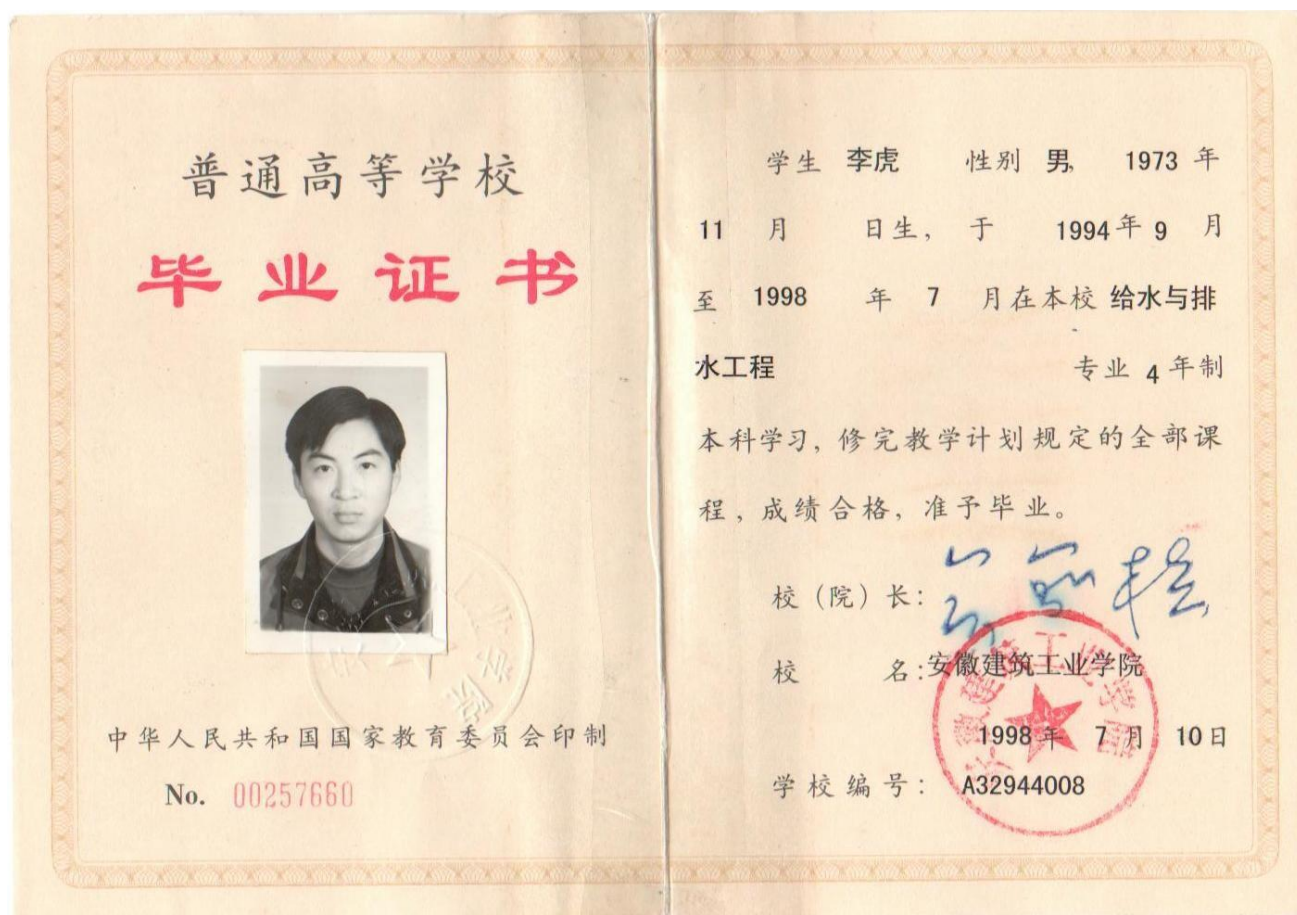 普通高等学校
毕业证书
中华人民共和国国家教育委员会印制
No. 00257660
学生 李虎 性别 男, 1973 年
11 月 日生, 于 1994年 9 月
至 1998 年 7 月在本校 给水与排
水工程 专业 4 年制
本科学习, 修完教学计划规定的全部课
程, 成绩合格, 准予毕业。
校（院）长:
校 名: 安徽建筑工业学院
1998 年 7 月 10日
学校编号: A32944008
安徽建筑工业学院